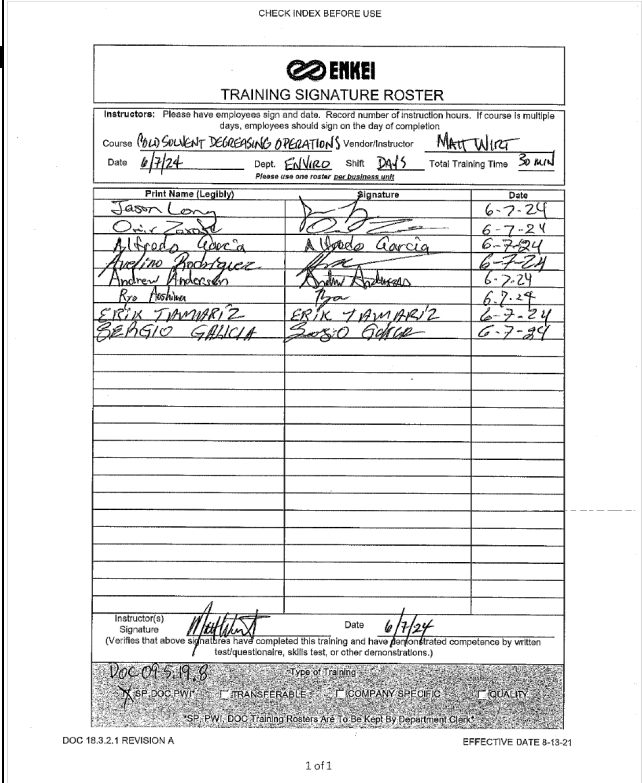 CHECK INDEX BEFORE USE
ENKEI
TRAINING SIGNATURE ROSTER
Instructors: Please have employees sign and date. Record number of instruction hours. If course is multiple
days, employees should sign on the day of completion
Course COLD SOLVENT DEGREASING OPERATIONS Vendor/Instructor MATT WIRT
Date 6/7/24 Dept. ENVIRO Shift DAYS Total Training Time 30 MIN
Please use one roster per business unit
Print Name (Legibly) Signature Date
Jason Long 6-7-24
6-7-24
Alfredo Garcia Alfredo Garcia 6-7-24
Avelino Rodriguez 6-7-24
Andrew Anderson Andrew Anderson 6-7-24
Ryo Ryo 6.7.24
ERIK TAMARIZ ERIK TAMARIZ 6-7-24
SERGIO GALICIA 6-7-24
Instructor(s)
Signature Date 6/7/24
(Verifies that above signatures have completed this training and have demonstrated competence by written
test/questionaire, skills test, or other demonstrations.)
DOC 09.5.19.8
Type of Training
X SP, DOC, PWI* TRANSFERABLE COMPANY SPECIFIC QUALITY
*SP, PWI, DOC Training Rosters Are To Be Kept By Department Clerk*
DOC 18.3.2.1 REVISION A EFFECTIVE DATE 8-13-21
1 of 1